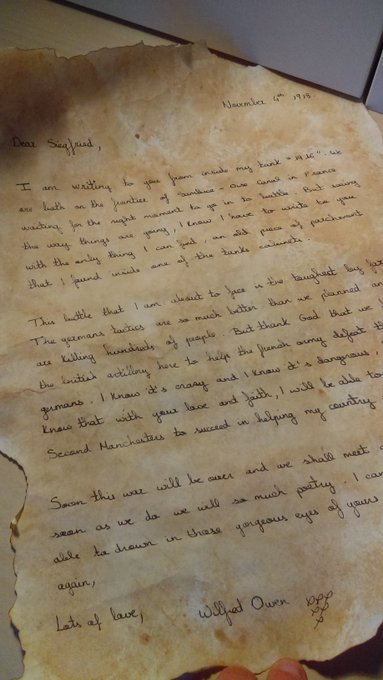 November 4th 1918.
Dear Siegfried,
I am writing to you from inside my tank "
are both on the frontier of Sambre - Oise Canal in France
waiting for the right moment to go in to battle. But seeing
the way things are going, I know I have to write to you
with the only thing I can find, an old piece of parchment
that I found inside one of the tanks cabinets.
This battle that I am about to face is the toughest by far
The germans tactics are so much better than we planned an
are killing hundreds of people. But thank God that we
the british artillery here to help the french army defeat t
germans. I know it's crazy and I know it's dangerous,
know that with your love and faith, I will be able to
Second Manchesters to succeed in helping my country
Soon this war will be over and we shall meet
soon as we do we will so much poetry. I can
able to drown in those gorgeous eyes of yours
again,
Lots of love, Wilfred Owen xxx